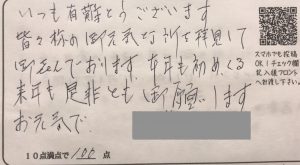 いつも有難とうございます
皆々様の御元気な所を拝見して
来年も是非ともお願いします
お元気で
10点満点で100点
スマホでも投稿
OK！チェック欄
記入後フロント
へお渡し下さい。